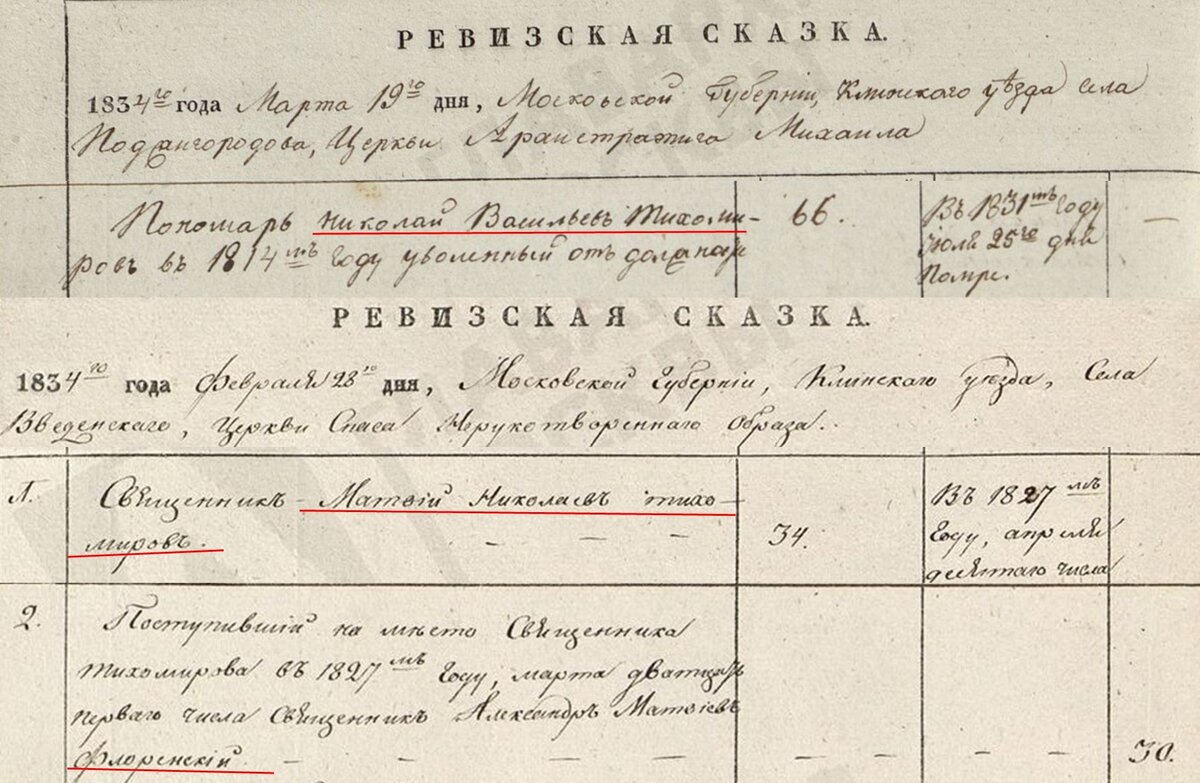 РЕВИЗСКАЯ СКАЗКА.
1834го года Марта 19го дня, Московской Губернiи, Клинского уѣзда села
Поджигородова, Церкви Архистратига Михаила
Пономарь Николай Васильевъ Тихоми-
ровъ въ 1814мъ году уволенный отъ должности
66.
Въ 1831мъ году
Iюля 25го дня
Помре.
РЕВИЗСКАЯ СКАЗКА.
1834го года Февраля 28го дня, Московской Губернiи, Клинскаго уѣзда, Села
Введенскаго, Церкви Спаса Нерукотвореннаго Образа.
1.
Священникъ Матвiй Николаевъ Тихо-
мировъ.
34.
Въ 1827мъ
году, апреля
десятаго числа
2.
Поступившiй на мѣсто Священника
Тихомирова въ 1827мъ году, марта дватцать
перваго числа Священникъ Александръ Матвiевъ
Флоренскiй
30.